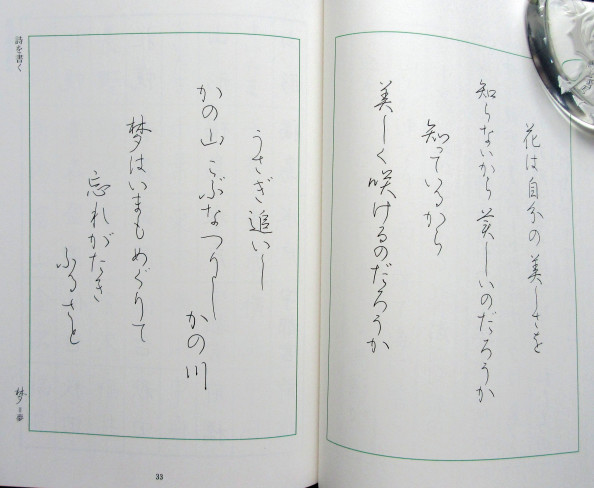 花は自分の美しさを
知らないから美しいのだろうか
知っているから
美しく咲けるのだろうか
うさぎ追いし
かの山 こぶなつりし かの川
梦はいまもめぐりて
忘れがたき
ふるさと
詩を書く
梦=夢
33